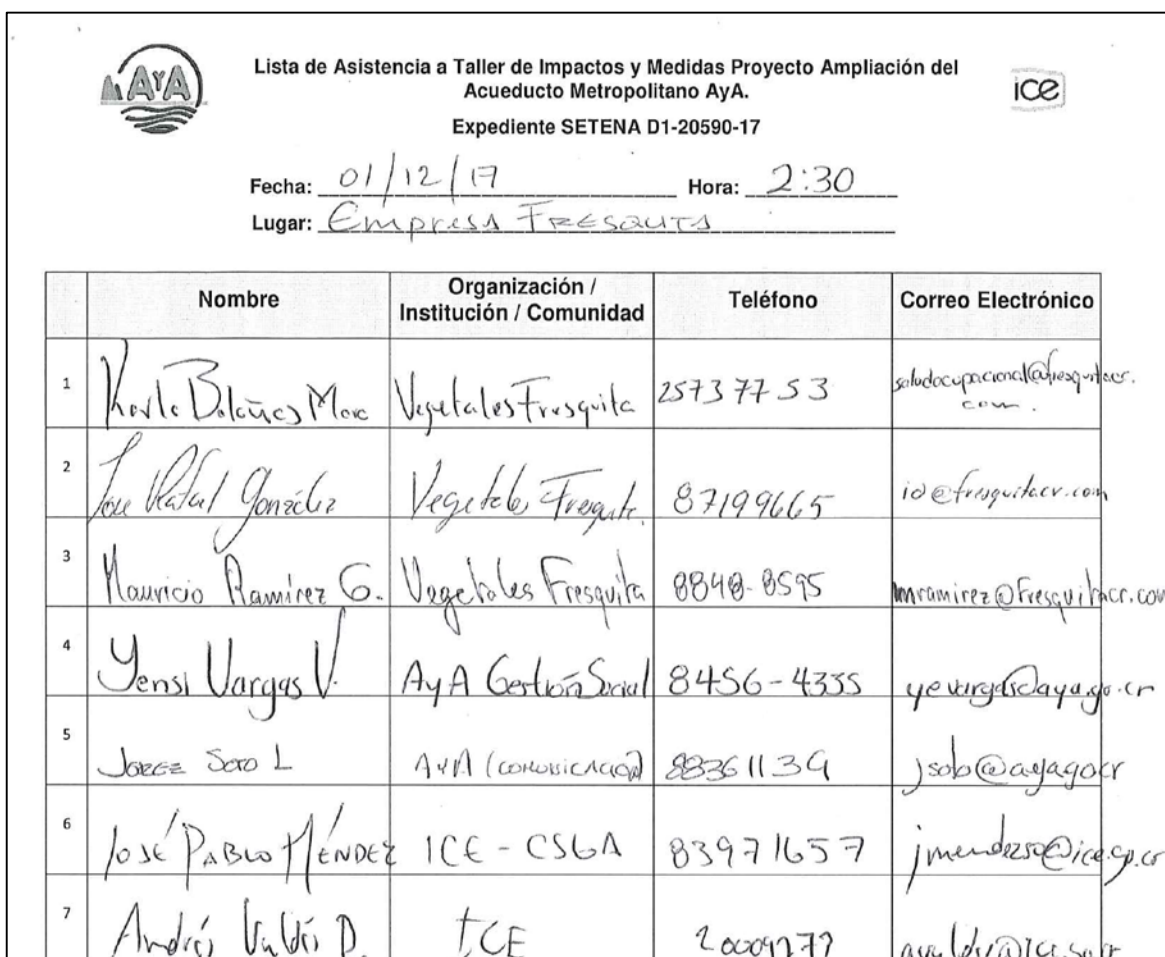 AYA
Lista de Asistencia a Taller de Impactos y Medidas Proyecto Ampliación del
Acueducto Metropolitano AyA.
ice
Expediente SETENA D1-20590-17
Fecha: 01/12/17 Hora: 2:30
Lugar: Empresa Fresquita
Nombre Organización / Institución / Comunidad Teléfono Correo Electrónico
1 Karla Bolaños Vegetales Fresquita 25737753 saludocupacional@fresquitacr.com
2 Jose Rafael González Vegetales Fresquita 87199665 id@fresquitacr.com
3 Mauricio Ramírez G. Vegetales Fresquita 8848-8595 mramirez@fresquitacr.com
4 Yensi Vargas V. AyA Gestión Social 8456-4335 yevargas@aya.go.cr
5 Jorge Soto L AyA (comunicación) 88361139
6 José Pablo Méndez ICE - CSGA 83971657
7 Andrés D. ICE